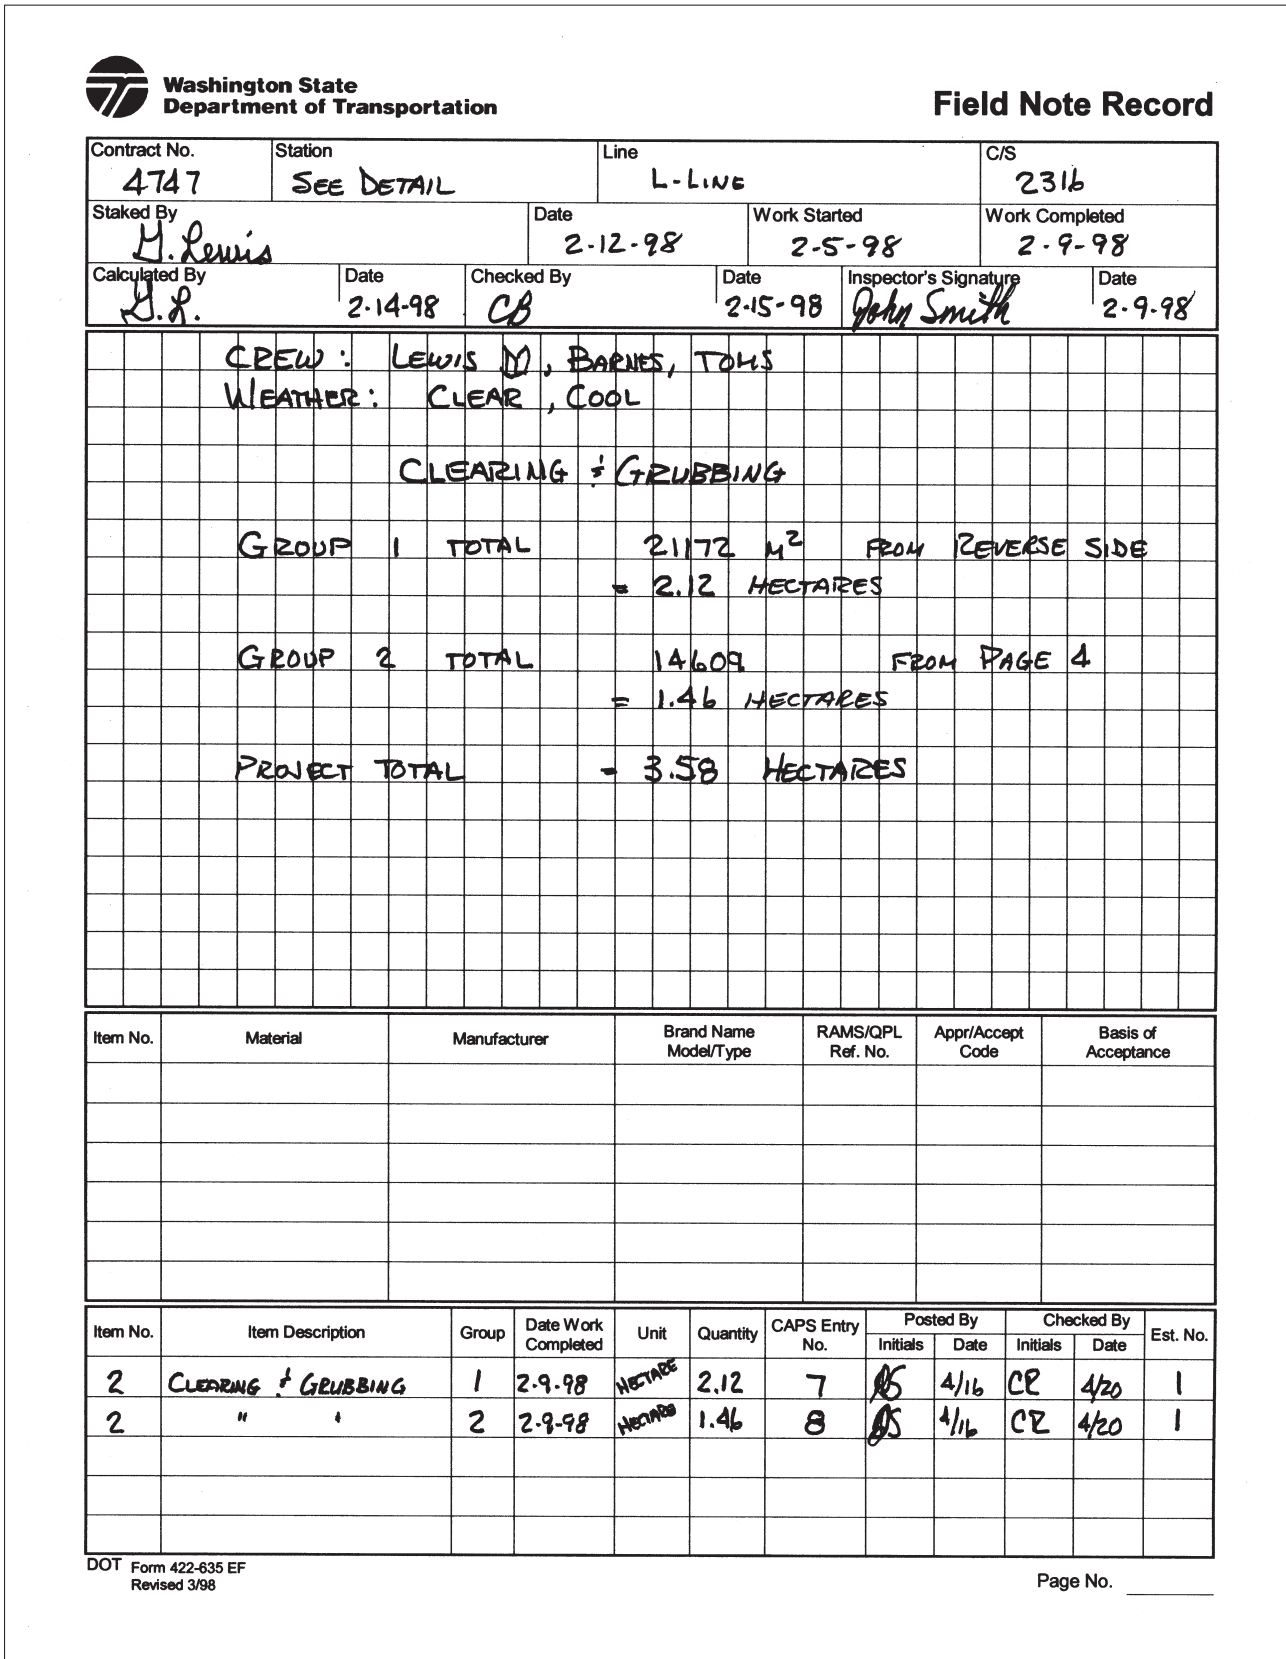 Washington State
Department of Transportation
Field Note Record
Contract No. Station Line C/S
4747 SEE DETAIL L-LINE 2316
Staked By Date Work Started Work Completed
G. Lewis 2-12-98 2-5-98 2-9-98
Calculated By Date Checked By Date Inspector's Signature Date
G.L. 2-14-98 CB 2-15-98 John Smith 2-9-98
CREW: LEWIS , BARNES, TOMS
WEATHER: CLEAR, COOL
CLEARING & GRUBBING
GROUP 1 TOTAL 21172 M² FROM REVERSE SIDE
= 2.12 HECTARES
GROUP 2 TOTAL 14609 FROM PAGE 4
= 1.46 HECTARES
PROJECT TOTAL = 3.58 HECTARES
Item No. Material Manufacturer Brand Name Model/Type RAMS/QPL Ref. No. Appr/Accept Code Basis of Acceptance
Item No. Item Description Group Date Work Completed Unit Quantity CAPS Entry No. Posted By Initials Date Checked By Initials Date Est. No.
2 CLEARING & GRUBBING 1 2-9-98 HECTARE 2.12 7 4/16 CR 4/20 1
2 " " 2 2-9-98 HECTARE 1.46 8 4/16 CR 4/20 1
DOT Form 422-635 EF
Revised 3/98
Page No.